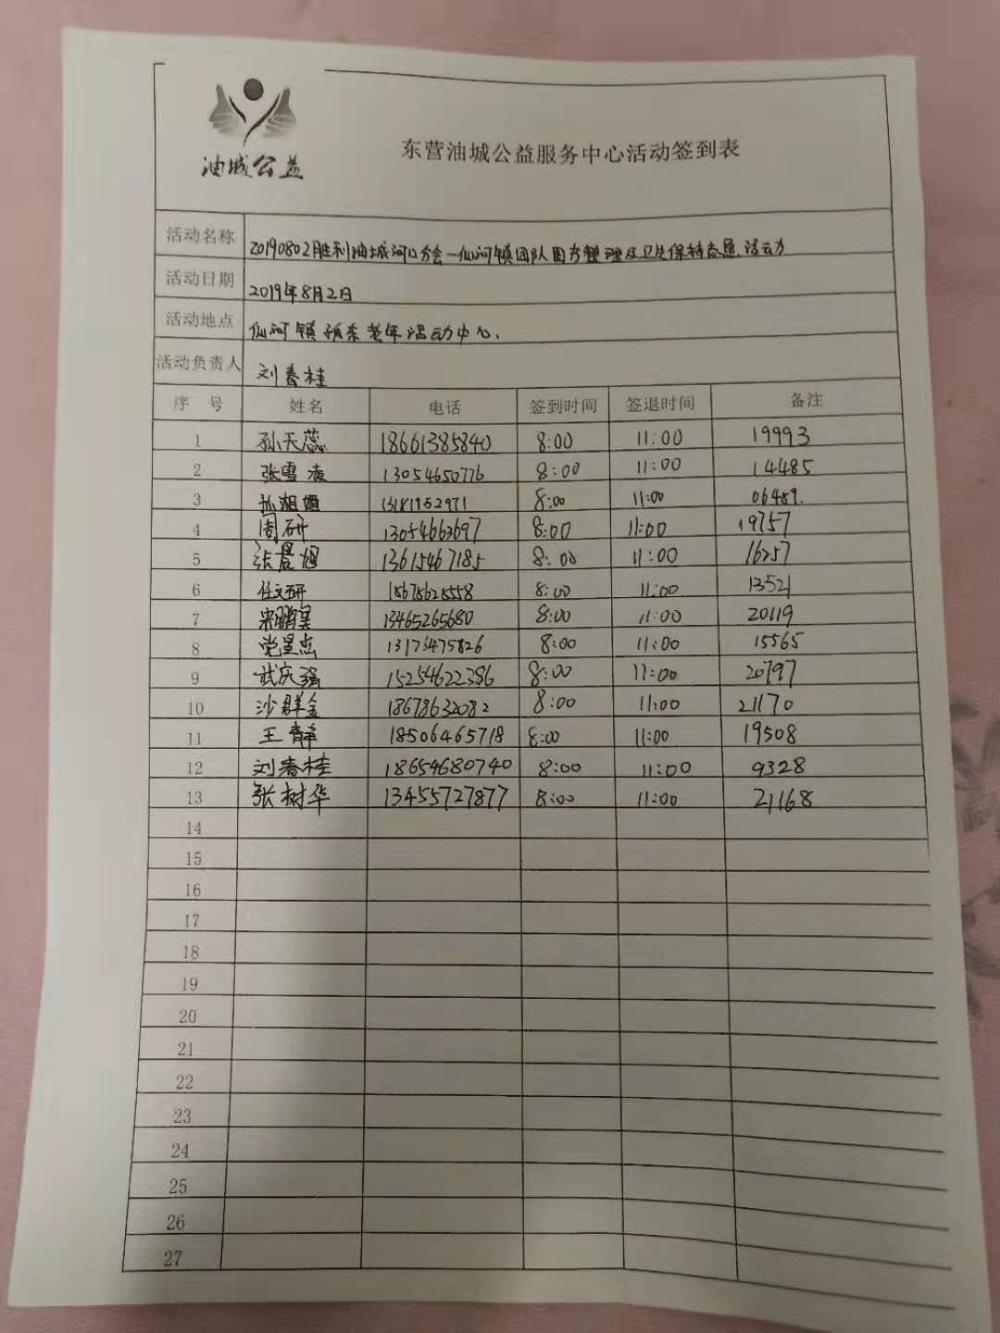 油城公益
东营油城公益服务中心活动签到表
活动名称 20190802胜利油城河口分会—仙河镇团队图书整理及卫生保持志愿活动
活动日期 2019年8月2日
活动地点 仙河镇振东老年活动中心、
活动负责人 刘春桂
序号 姓名 电话 签到时间 签退时间 备注
1 孙天蕊 18661385840 8:00 11:00 19993
2 张雪凌 13054650776 8:00 11:00 14485
3 8:00 11:00 06489.
4 周研 13054663697 8:00 11:00 19757
5 张晨旭 13615467185 8:00 11:00 16257
6 任文研 8:00 11:00 13521
7 宋鹏昊 13465265680 8:00 11:00 20119
8 13176475826 8:00 11:00 15565
9 武庆强 15254622386 8:00 11:00 20797
10 沙群金 18678632082 8:00 11:00 21170
11 王静 18506465718 8:00 11:00 19508
12 刘春桂 18654680740 8:00 11:00 9328
13 张树华 13455727877 8:00 11:00 21168
14
15
16
17
18
19
20
21
22
23
24
25
26
27